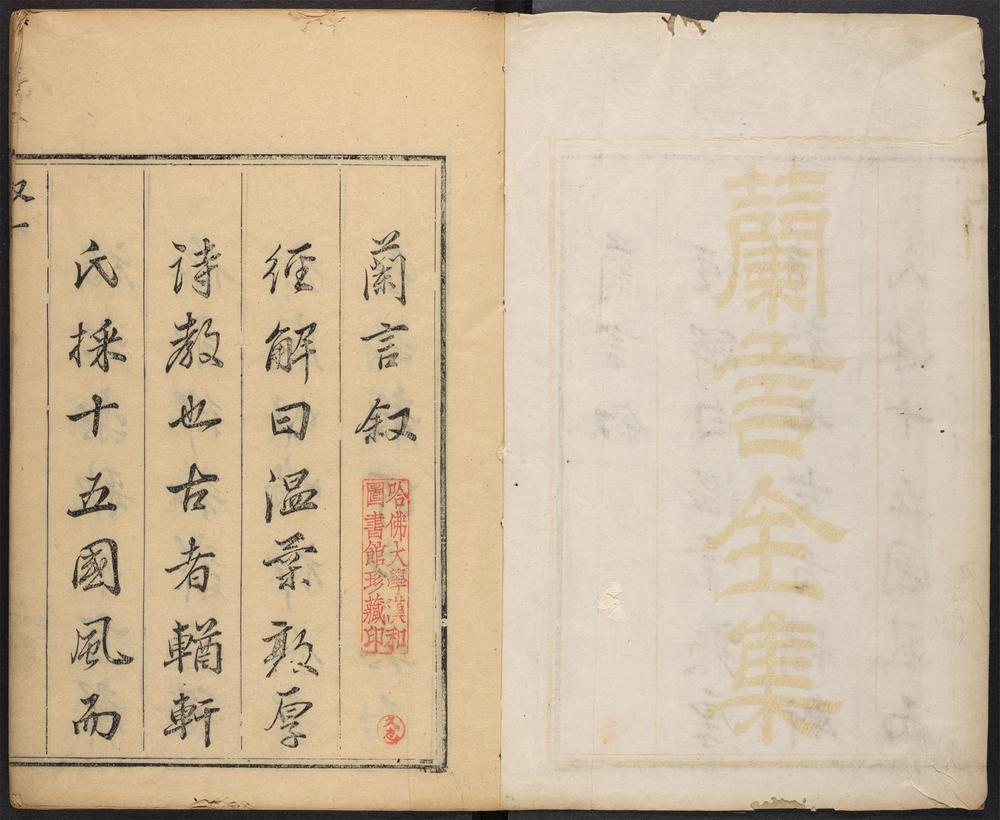 蘭言全集
蘭言叙
哈佛大學漢和
圖書館珍藏印
經解曰温柔敦厚
詩教也古者輶軒
氏採十五國風而